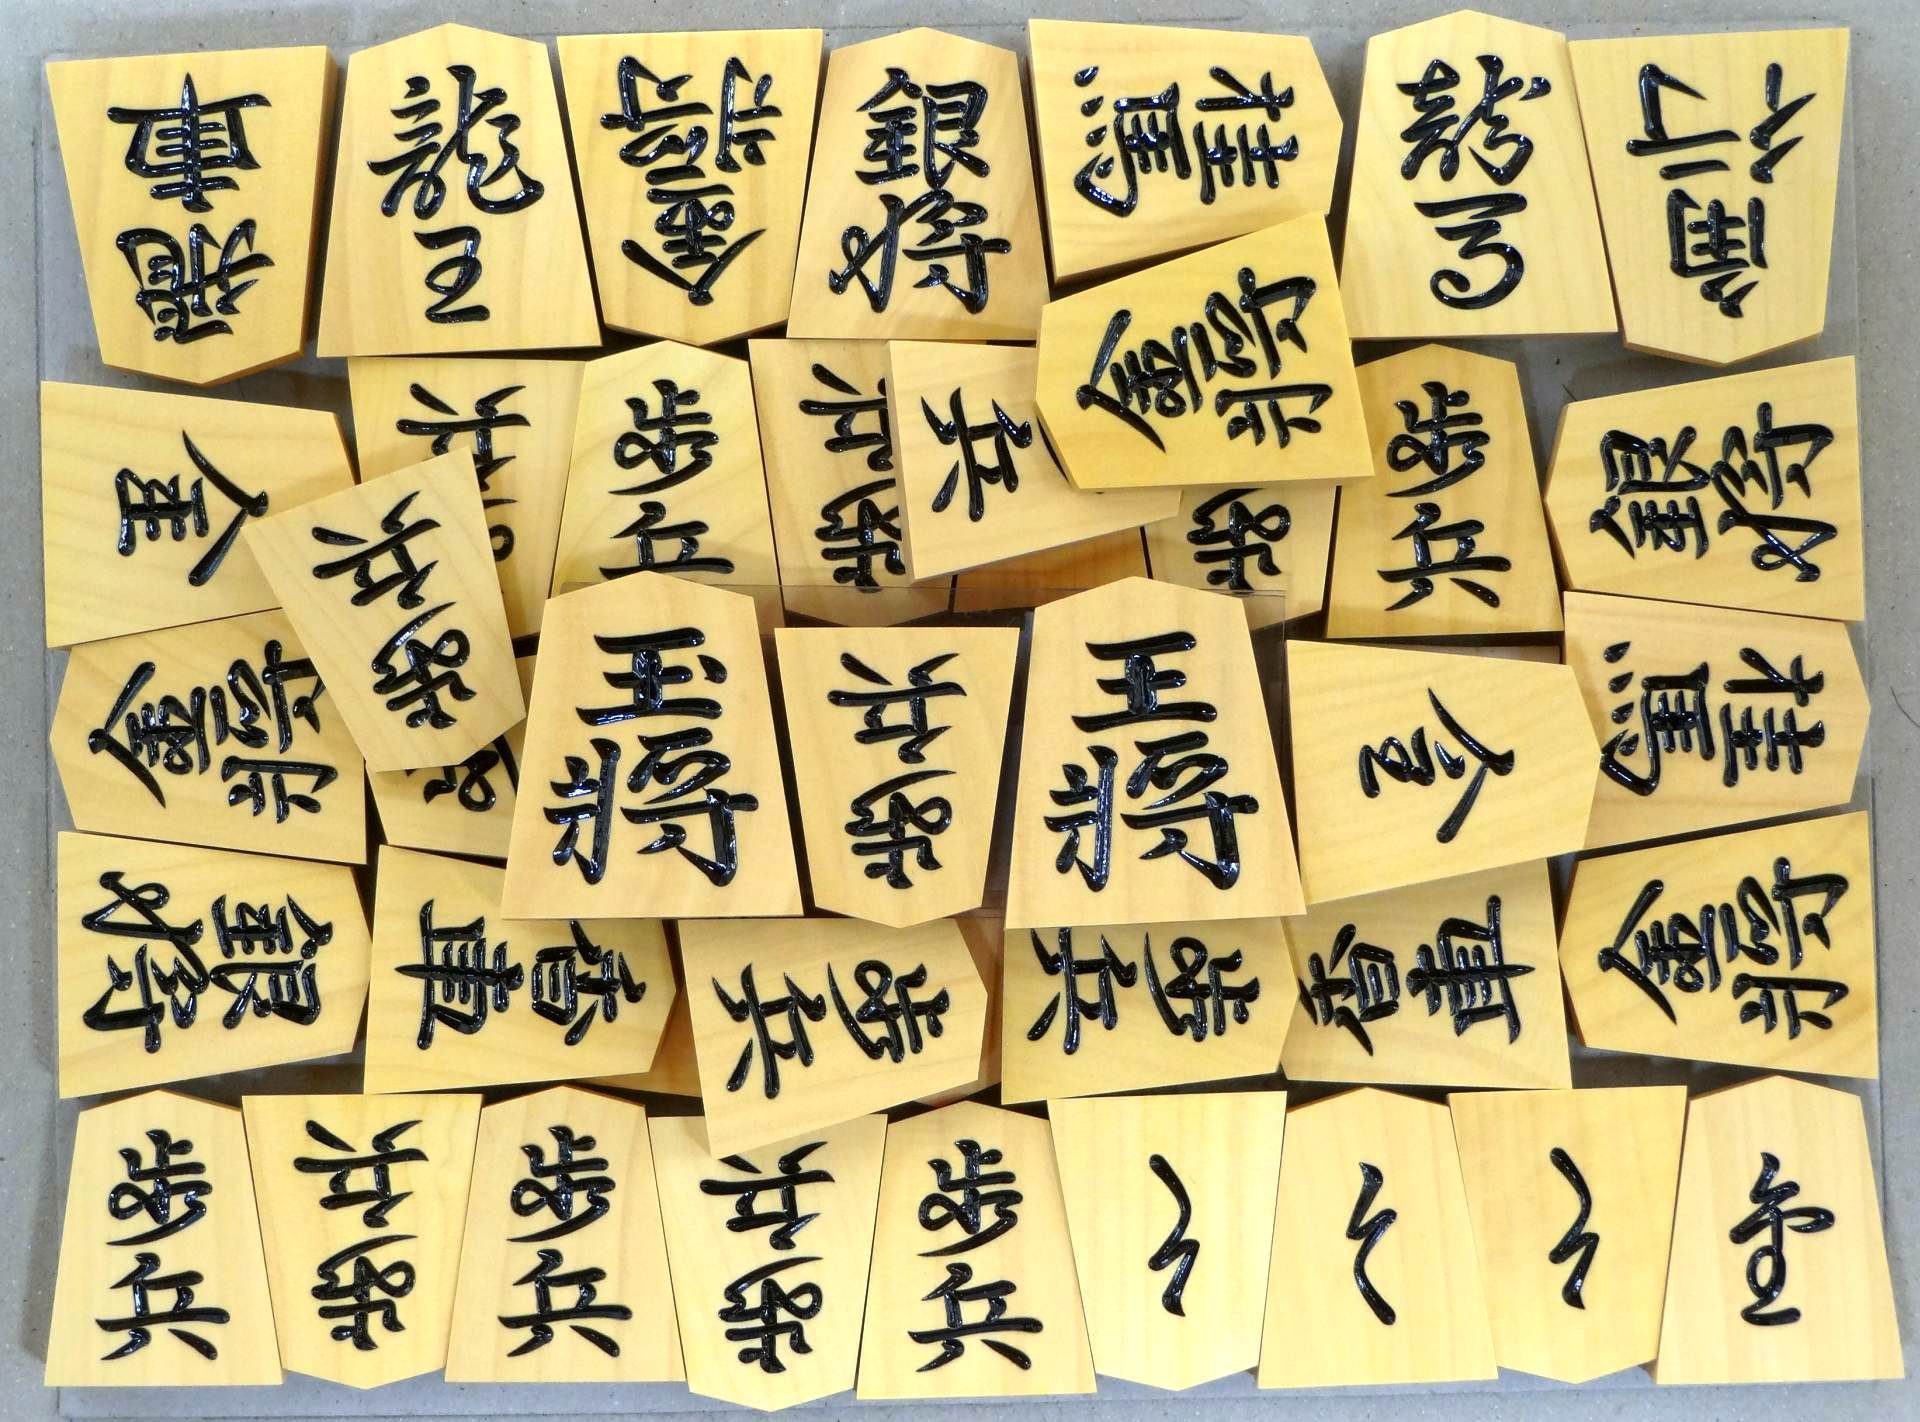 飛車
龍王
金將
銀将
桂馬
龍馬
角行
全
歩兵
歩兵
歩兵
兵
金將
歩
歩兵
銀将
金將
歩兵
玉將
歩兵
王將
桂馬
銀将
香車
歩兵
歩兵
香車
金將
歩兵
歩兵
歩兵
歩兵
歩兵
と
と
と